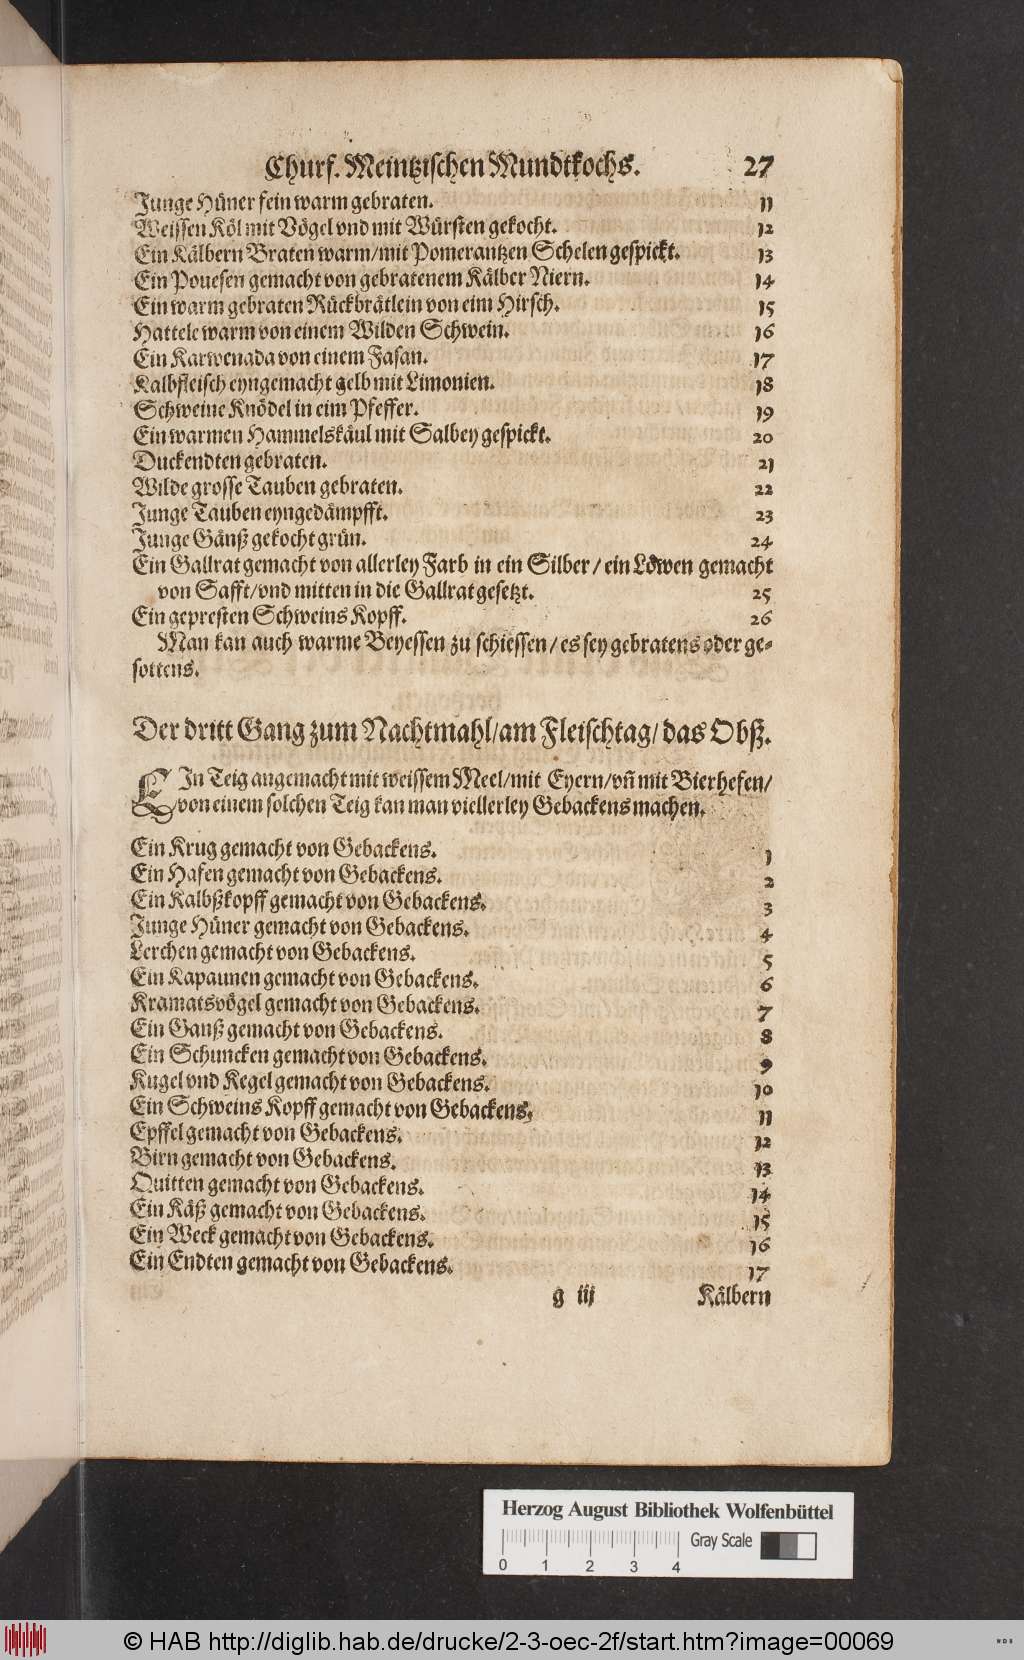 Churf. Meintzischen Mundtkochs. 27
Junge Hüner fein warm gebraten. 11
Weissen Köl mit Vögel vnd mit Würsten gekocht. 12
Ein Kälbern Braten warm/mit Pomerantzen Schelen gespickt. 13
Ein Pouesen gemacht von gebratenem Kälber Niern. 14
Ein warm gebraten Rückbrätlein von eim Hirsch. 15
Hattele warm von einem Wilden Schwein. 16
Ein Karwenada von einem Fasan. 17
Kalbfleisch eyngemacht gelb mit Limonien. 18
Schweine Knödel in eim Pfeffer. 19
Ein warmen Hammelskäul mit Salbey gespickt. 20
Duckendten gebraten. 21
Wilde grosse Tauben gebraten. 22
Junge Tauben eyngedämpfft. 23
Junge Gänß gekocht grün. 24
Ein Gallrat gemacht von allerley Farb in ein Silber / ein Löwen gemacht
von Safft/vnd mitten in die Gallrat gesetzt. 25
Ein gepresten Schweins Kopff. 26
Man kan auch warme Beyessen zu schiessen / es sey gebratens oder ge-
sottens.
Der dritt Gang zum Nachtmahl/am Fleischtag/ das Obß.
EIn Teig angemacht mit weissem Meel/mit Eyern/vñ mit Bierhefen/
von einem solchen Teig kan man viellerley Gebackens machen.
Ein Krug gemacht von Gebackens. 1
Ein Hafen gemacht von Gebackens. 2
Ein Kalbßkopff gemacht von Gebackens. 3
Junge Hüner gemacht von Gebackens. 4
Lerchen gemacht von Gebackens. 5
Ein Kapaunen gemacht von Gebackens. 6
Kramatsvögel gemacht von Gebackens. 7
Ein Ganß gemacht von Gebackens. 8
Ein Schuncken gemacht von Gebackens. 9
Kugel vnd Kegel gemacht von Gebackens. 10
Ein Schweins Kopff gemacht von Gebackens. 11
Epffel gemacht von Gebackens. 12
Birn gemacht von Gebackens. 13
Quitten gemacht von Gebackens. 14
Ein Käß gemacht von Gebackens. 15
Ein Weck gemacht von Gebackens. 16
Ein Endten gemacht von Gebackens. 17
g iij Kälbern
Herzog August Bibliothek Wolfenbüttel
Gray Scale
0 1 2 3 4
© HAB http://diglib.hab.de/drucke/2-3-oec-2f/start.htm?image=00069